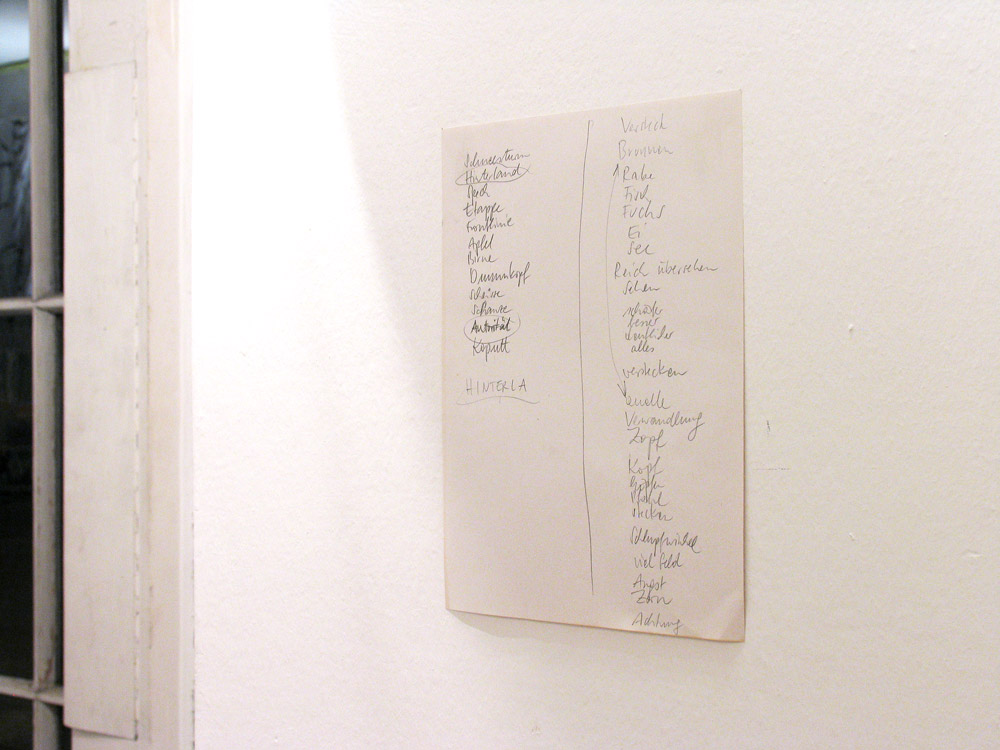 Schneesturm
Hinterland
Speck
Etappe
Frontlinie
Apfel
Birne
Dummkopf
Scheisse
Schanze
Autorität
Kaputt
HINTERLA
Versteck
Brunnen
Rabe
Fisch
Fuchs
Ei
See
Reich übersehen
Sehen
alles
verstecken
Quelle
Verwandlung
Zopf
Kopf
Schlupfwinkel
viel Feld
Angst
Zorn
Achtung